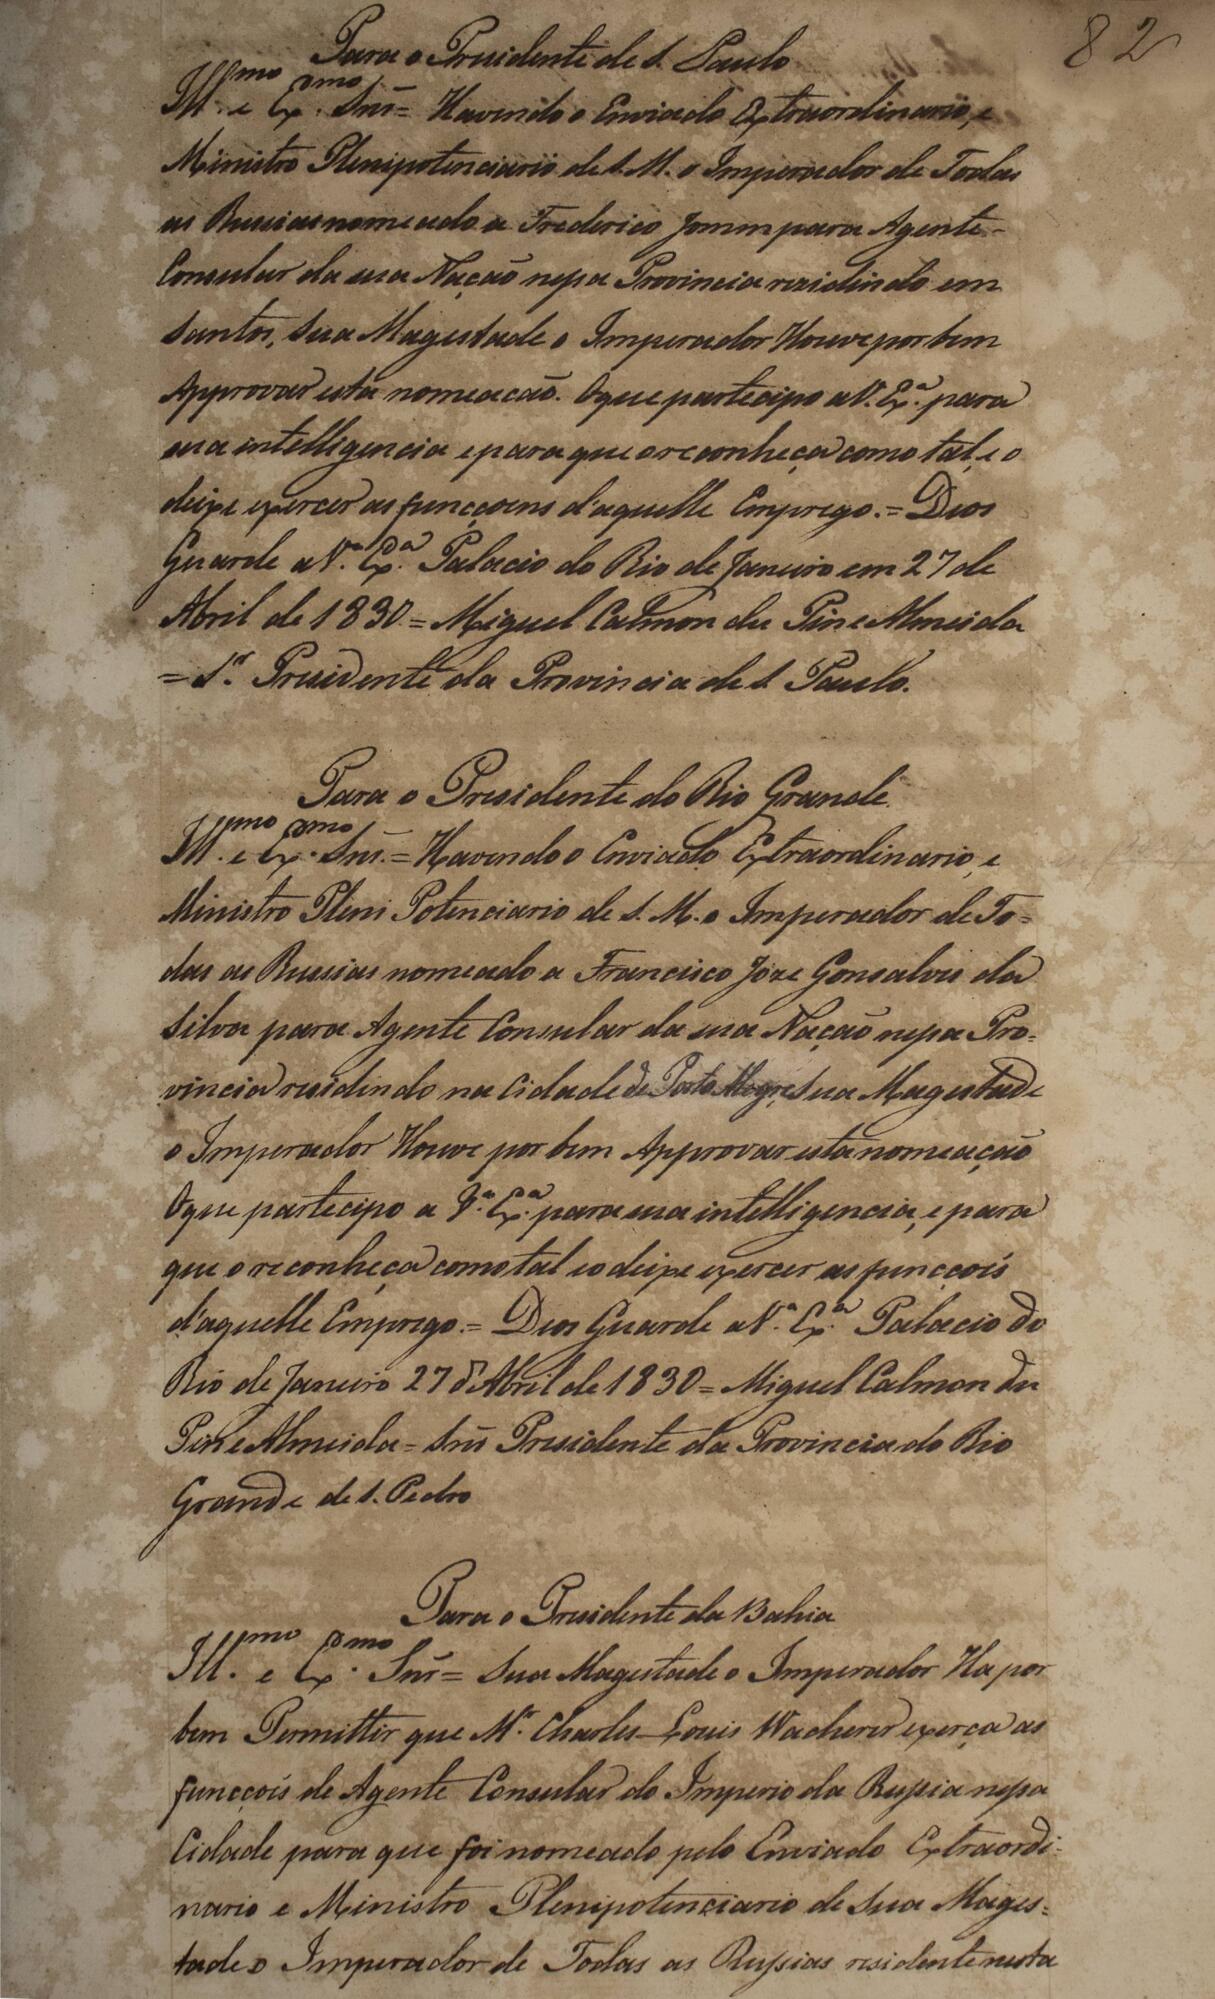 82
Para o Presidente de S. Paulo
Ill.mo e Ex.mo Snr = Havendo o Enviado Extraordinario, e
Ministro Plenipotenciario de S. M. o Imperador de Todas
as Russias nomeado a Frederico Fomm para Agente
Consular da sua Nação nessa Provincia rezidindo em
Santos, Sua Magestade o Imperador Houve por bem
Approvar esta nomeacão. O que partecipo a V. Ex.a para
sua intelligencia e para que o reconheça como tal, e o
deixe exercer as funcçoens d'aquelle Emprego. = Deos
Guarde a V.a Ex.a Palacio do Rio de Janeiro em 27 de
Abril de 1830 = Miguel Calmon du Pin e Almeida
= S.r Presidente da Provincia de S. Paulo.
Para o Presidente do Rio Grande.
Ill.mo e Ex.mo Snr. = Havendo o Enviado Extraordinario, e
Ministro Pleni Potenciario de S. M. o Imperador de To=
das as Russias nomeado a Francisco Joze Gonsalves da
Silva para Agente Consular da sua Nação nessa Pro=
vincia residindo na Cidade de Porto Alegre, Sua Magestade
o Imperador Houve por bem Approvar esta nomeação
O que partecipo a V.a Ex.a para sua intelligencia, e para
que o reconheça como tal e o deixe exercer as funccois
d'aquelle Emprego. = Deos Guarde a V.a Ex.a Palacio do
Rio de Janeiro 27 d'Abril de 1830 = Miguel Calmon du
Pin e Almeida = Snr Presidente da Provincia do Rio
Grande de S. Pedro
Para o Presidente da Bahia
Ill.mo e Ex.mo Snr = Sua Magestade o Imperador Ha por
bem Permittir que M.r Charles Louis Wacherer exerça as
funccois de Agente Consular do Imperio da Russia nessa
Cidade para que foi nomeado pelo Enviado Extraordi=
nario e Ministro Plenipotenciario de Sua Mages=
tade o Imperador de Todas as Russias residente nesta